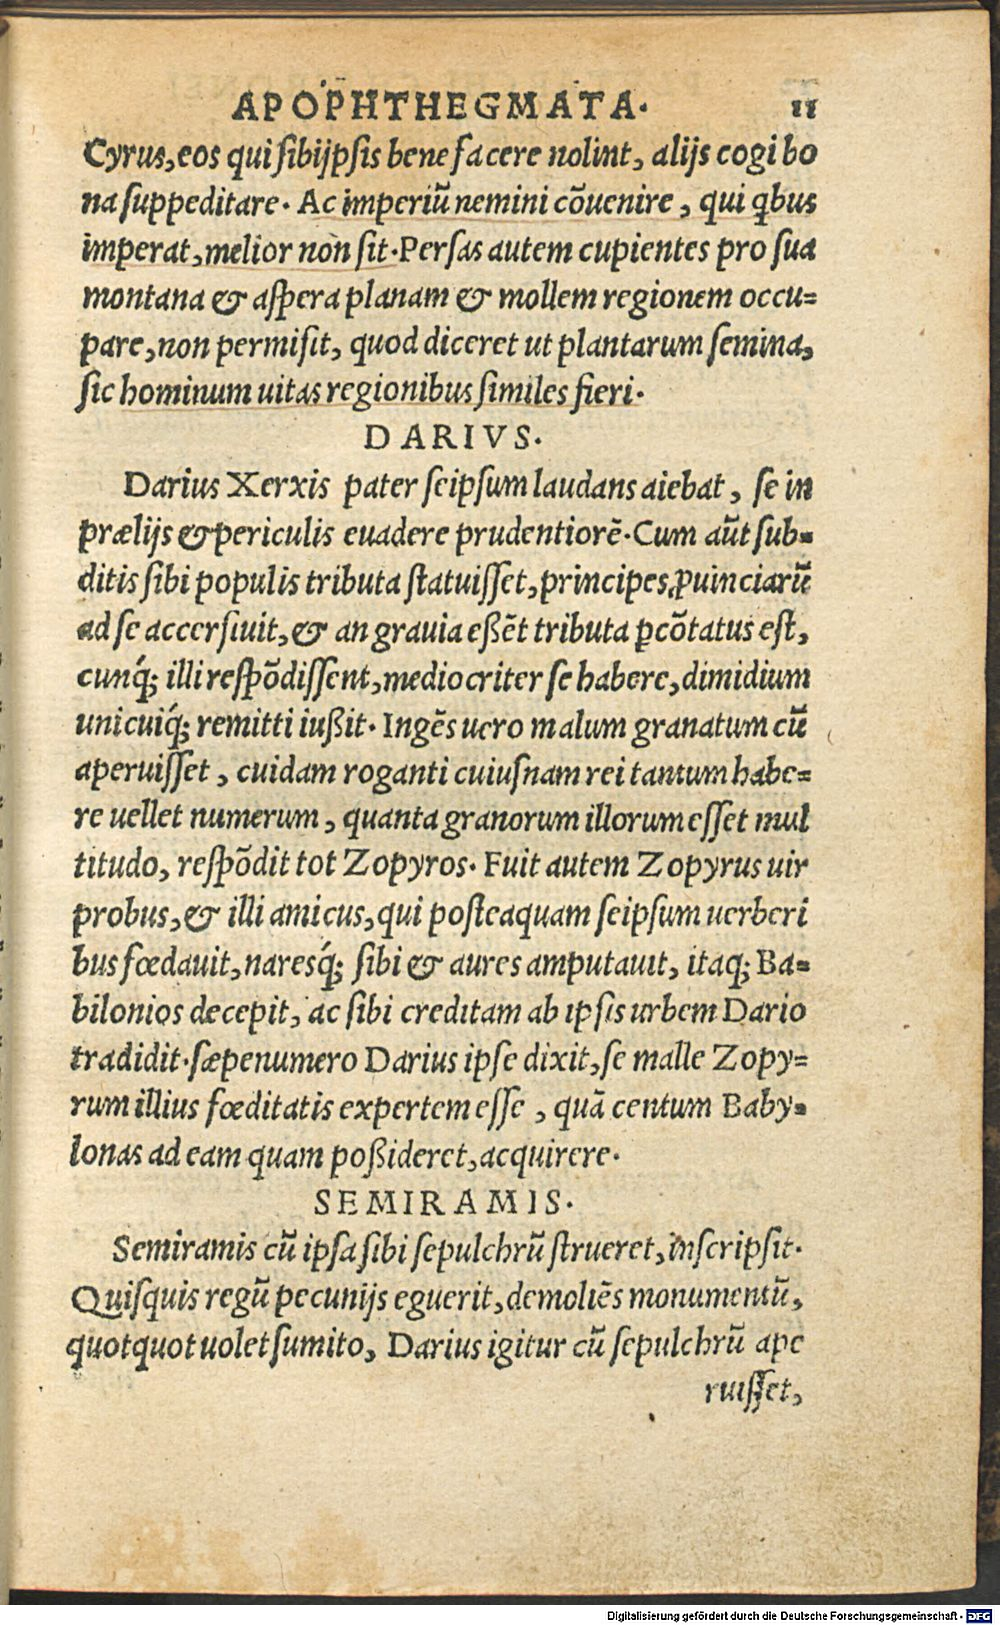 APOPHTHEGMATA. 11
Cyrus, eos qui sibijpsis bene facere nolint, alijs cogi bo
na suppeditare. Ac imperiū nemini cōuenire, qui qbus
imperat, melior non sit. Persas autem cupientes pro sua
montana & aspera planam & mollem regionem occu=
pare, non permisit, quod diceret ut plantarum semina,
sic hominum uitas regionibus similes fieri.
DARIVS.
Darius Xerxis pater seipsum laudans aiebat, se in
prælijs & periculis euadere prudentiorē. Cum aūt sub=
ditis sibi populis tributa statuisset, principes ꝓuinciarū
ad se accersiuit, & an grauia eßēt tributa ꝑcōtatus est,
cunq́; illi respōdissent, mediocriter se habere, dimidium
unicuiq́; remitti iußit. Ingēs uero malum granatum cū
aperuisset, cuidam roganti cuiusnam rei tantum habe=
re uellet numerum, quanta granorum illorum esset mul
titudo, respōdit tot Zopyros. Fuit autem Zopyrus uir
probus, & illi amicus, qui posteaquam seipsum uerberi
bus fœdauit, naresq́; sibi & aures amputauit, itaq; Ba=
bilonios decepit, ac sibi creditam ab ipsis urbem Dario
tradidit. sæpenumero Darius ipse dixit, se malle Zopy=
rum illius fœditatis expertem esse, quā centum Baby=
lonas ad eam quam poßideret, acquirere.
SEMIRAMIS.
Semiramis cū ipsa sibi sepulchrū strueret, inscripsit.
Quisquis regū pecunijs eguerit, demoliēs monumentū,
quotquot uolet sumito, Darius igitur cū sepulchrū ape
ruisset,
Digitalisierung gefördert durch die Deutsche Forschungsgemeinschaft - DFG